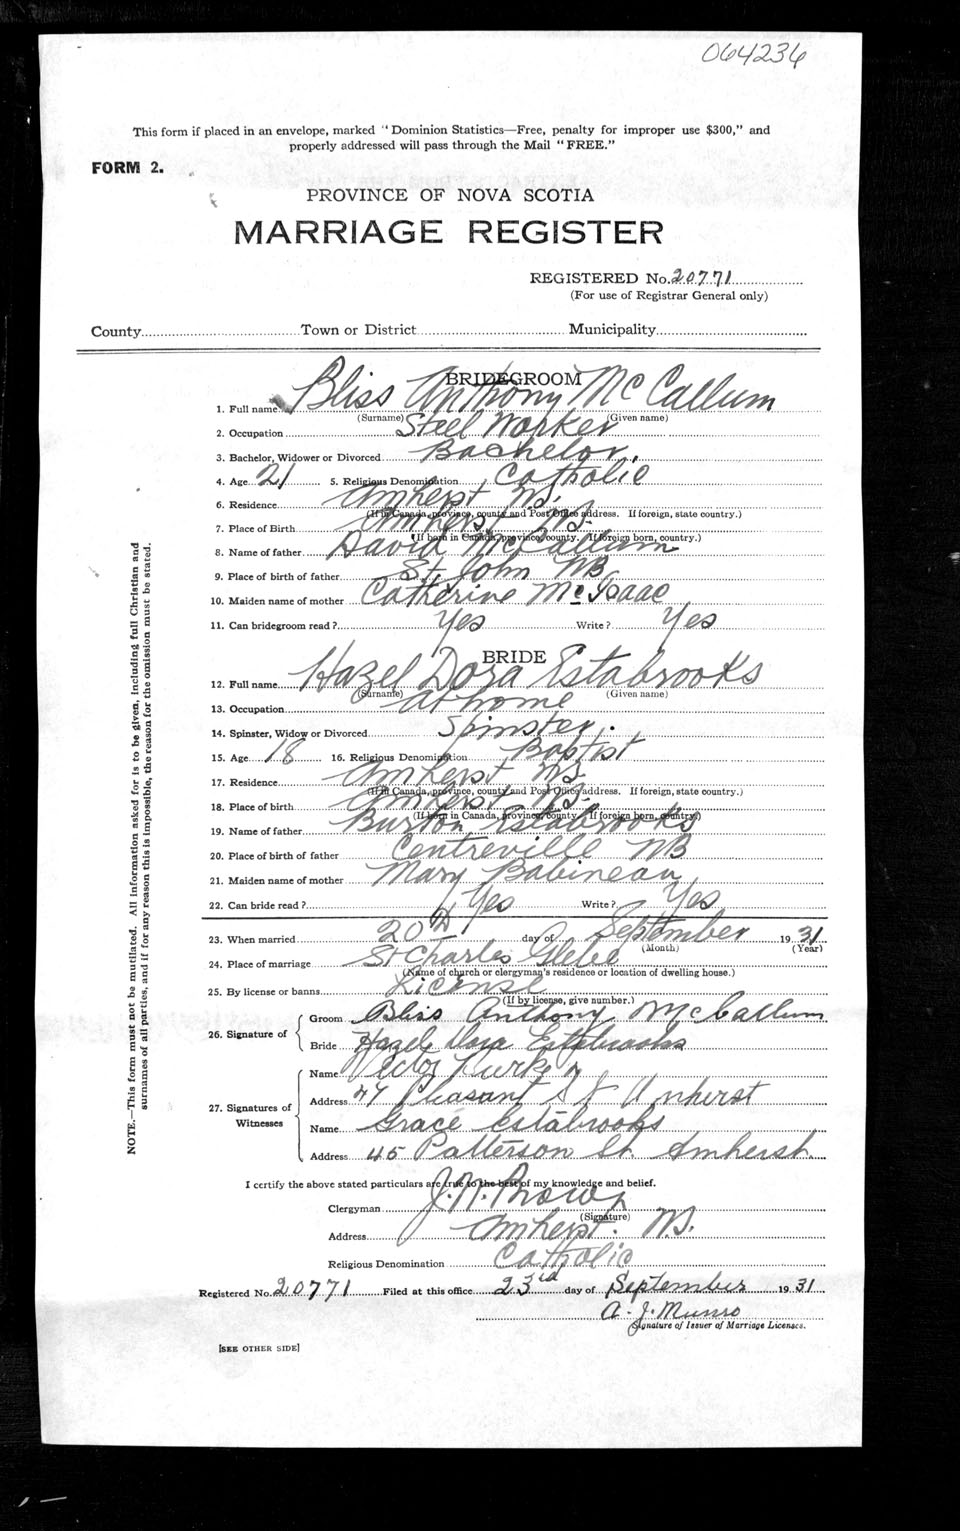 064236
This form if placed in an envelope, marked "Dominion Statistics—Free, penalty for improper use $300," and
properly addressed will pass through the Mail "FREE."
FORM 2.
PROVINCE OF NOVA SCOTIA
MARRIAGE REGISTER
REGISTERED No. 20771
(For use of Registrar General only)
County Town or District Municipality
BRIDEGROOM
1. Full name Bliss Anthony McCallum
(Surname) (Given name)
2. Occupation Steel Worker
3. Bachelor, Widower or Divorced Bachelor.
4. Age 21 5. Religious Denomination Catholic
6. Residence Amherst N.S.
(If in Canada, province, county and Post Office address. If foreign, state country.)
7. Place of Birth Amherst N.S.
(If born in Canada, province, county. If foreign born, country.)
8. Name of father David McCallum
9. Place of birth of father St. John NB
10. Maiden name of mother Catherine McIsaac
11. Can bridegroom read? Yes Write? Yes
BRIDE
12. Full name Hazel Dora Estabrooks
(Surname) (Given name)
13. Occupation at home
14. Spinster, Widow or Divorced Spinster.
15. Age 18 16. Religious Denomination Baptist
17. Residence Amherst N.S.
(If in Canada, province, county and Post Office address. If foreign, state country.)
18. Place of birth Amherst N.S.
(If born in Canada, province, county. If foreign born, country.)
19. Name of father Burton Estabrooks
20. Place of birth of father Centreville NB
21. Maiden name of mother Mary Babineau
22. Can bride read? Yes Write? Yes
23. When married 20th day of September 1931
(Month) (Year)
24. Place of marriage St Charles Glebe
(Name of church or clergyman's residence or location of dwelling house.)
25. By license or banns License
(If by license, give number.)
26. Signature of
Groom Bliss Anthony McCallum
Bride Hazel Dora Estabrooks
27. Signatures of Witnesses
Name
Address 47 Pleasant St Amherst
Name Grace Estabrooks
Address 45 Patterson St. Amherst
I certify the above stated particulars are true to the best of my knowledge and belief.
Clergyman J.N.
(Signature)
Address Amherst. N.S.
Religious Denomination Catholic
Registered No. 20771 Filed at this office 23rd day of September 1931
A. J. Munro
Signature of Issuer of Marriage Licenses.
[SEE OTHER SIDE]
NOTE.—This form must not be mutilated. All information asked for is to be given, including full Christian and
surnames of all parties, and if for any reason this is impossible, the reason for the omission must be stated.